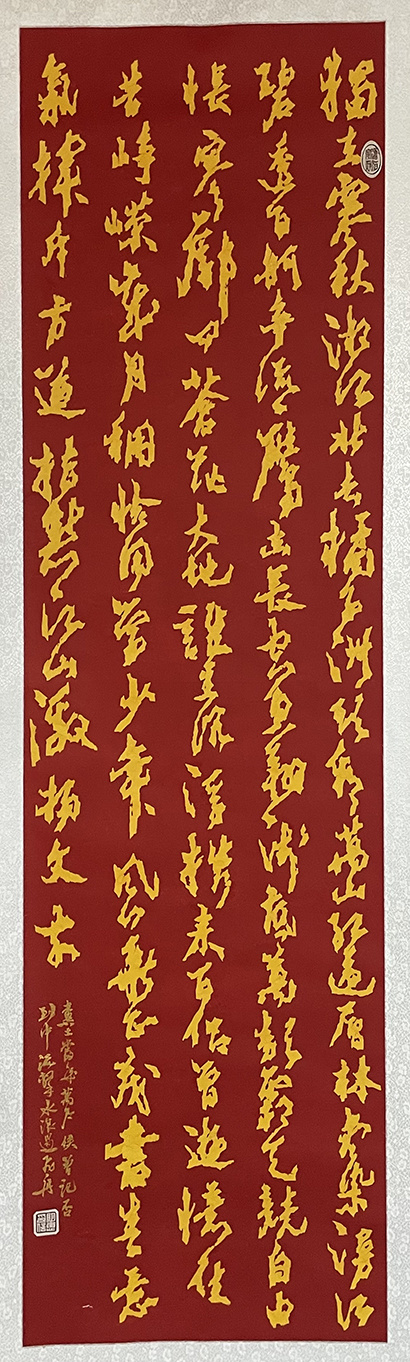 獨立寒秋湘江北去橘子洲頭看萬山紅遍層林盡染漫江
碧透百舸爭流鷹擊長空魚翔淺底萬類霜天競自由
悵寥廓問蒼茫大地誰主沉浮攜來百侶曾遊憶往
昔崢嶸歲月稠恰同學少年風華正茂書生意
氣揮斥方遒指點江山激揚文字
糞土當年萬戶侯曾記否
到中流擊水浪遏飛舟